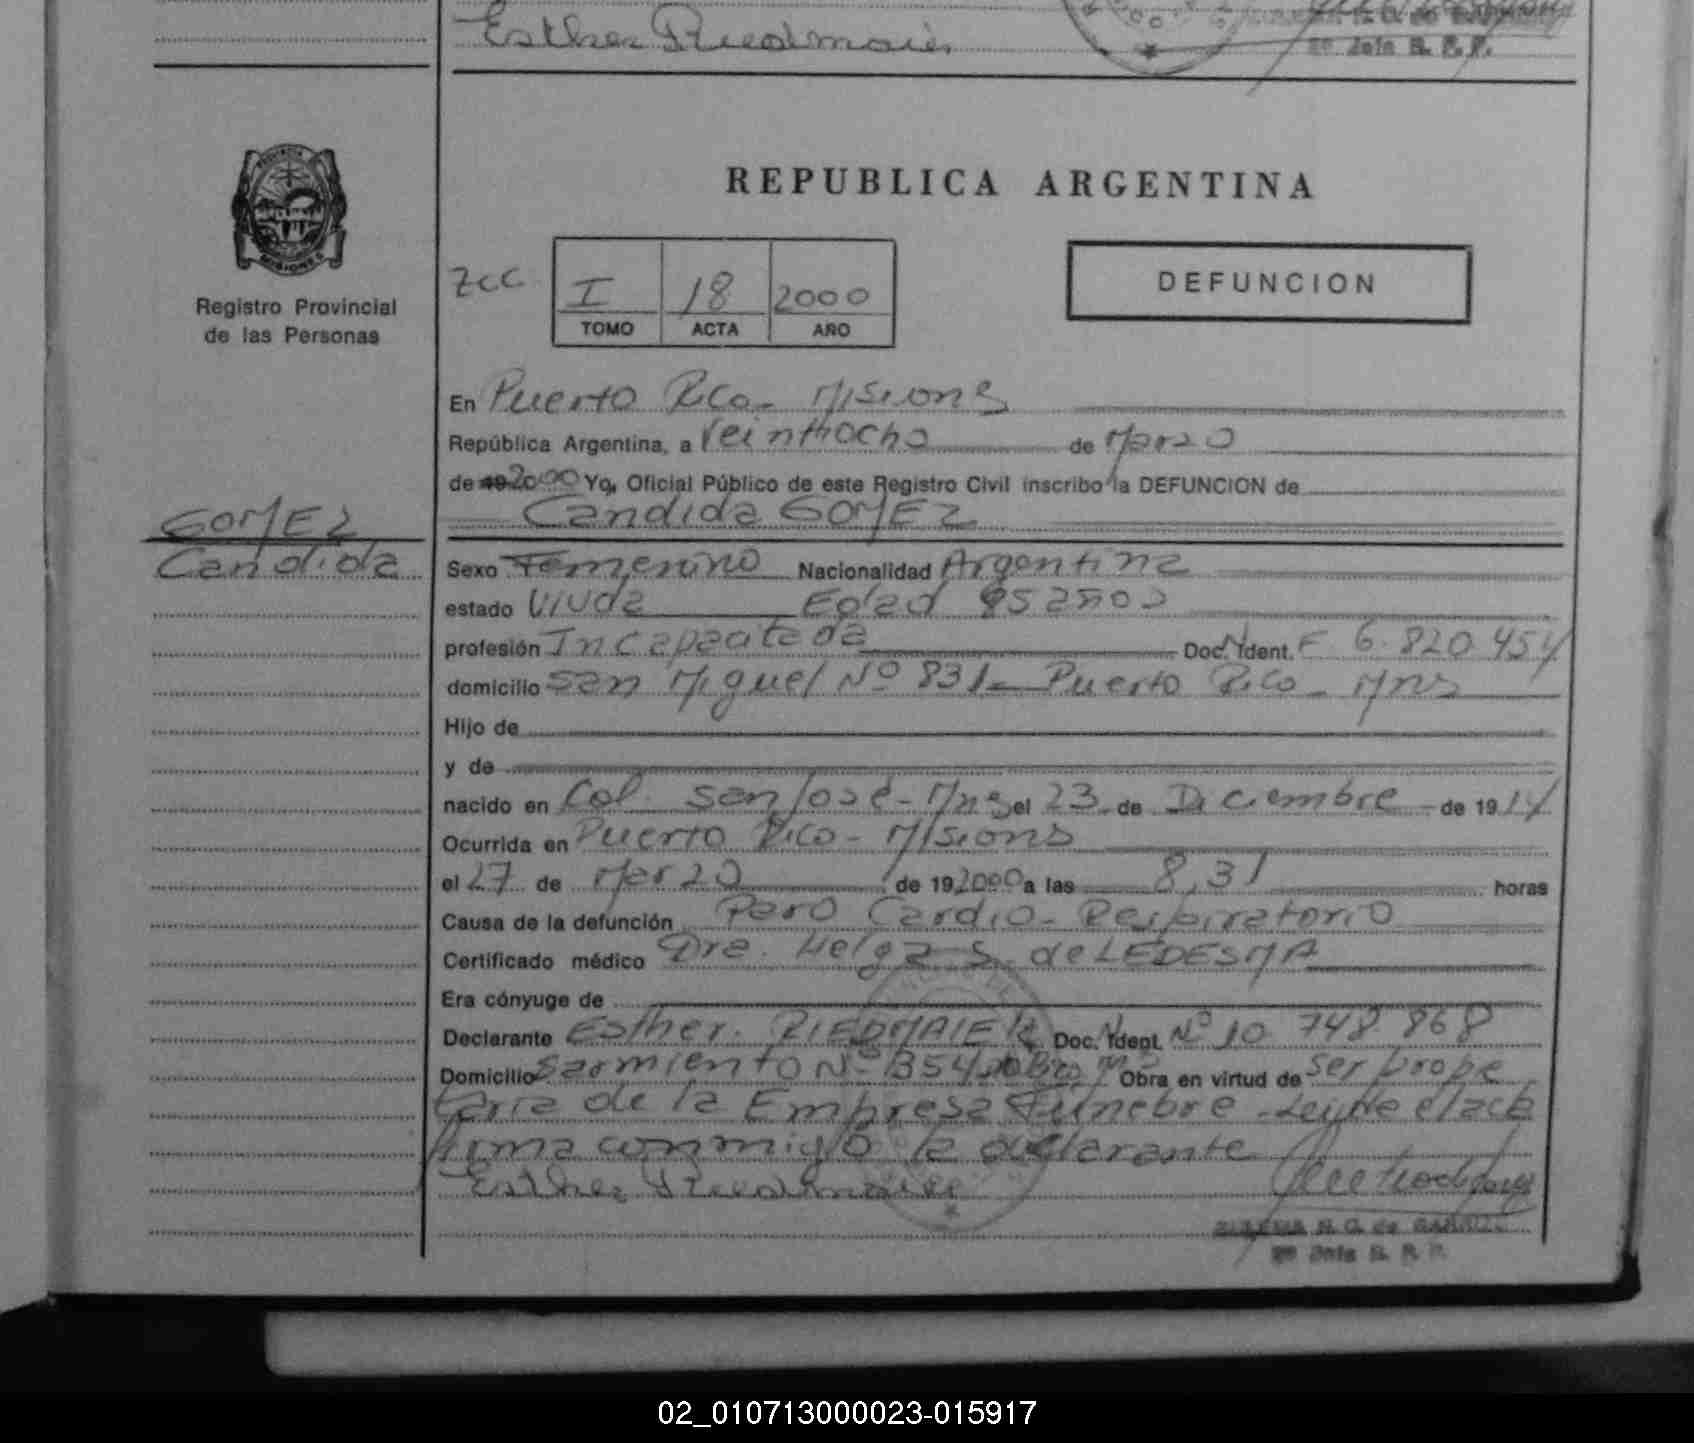 Esther Riedmaier
2º Jefe R. P. P.
PROVINCIA
MISIONES
Registro Provincial
de las Personas
REPUBLICA ARGENTINA
DEFUNCION
Zcc I 18 2000
TOMO ACTA AÑO
En Puerto Rico - Misiones
República Argentina, a Veintiocho de Marzo
de 19 2000 Yo, Oficial Público de este Registro Civil inscribo la DEFUNCION de
Candida GOMEZ
GOMEZ
Candida
Sexo Femenino Nacionalidad Argentina
estado Viuda Edad 85 años
profesión Incapacitada Doc. Ident. F. 6.820.454
domicilio San Miguel Nº 831 - Puerto Rico - Mns
Hijo de
y de
nacido en Col. San José - Mns el 23 de Diciembre de 1914
Ocurrida en Puerto Rico - Misiones
el 27 de Marzo de 19 2000 a las 8,31 horas
Causa de la defunción Paro Cardio - Respiratorio
Certificado médico Dra. Helga S. de LEDESMA
Era cónyuge de
Declarante Esther. RIEDMAIER Doc. Ident. Nº 10 748 868
Domicilio Sarmiento Nº 354 Obra en virtud de ser prope
taria de la Empresa Fúnebre - Leída el acta
firma conmigo la declarante
Esther Riedmaier
2º Jefe R. P. P.
02_010713000023-015917